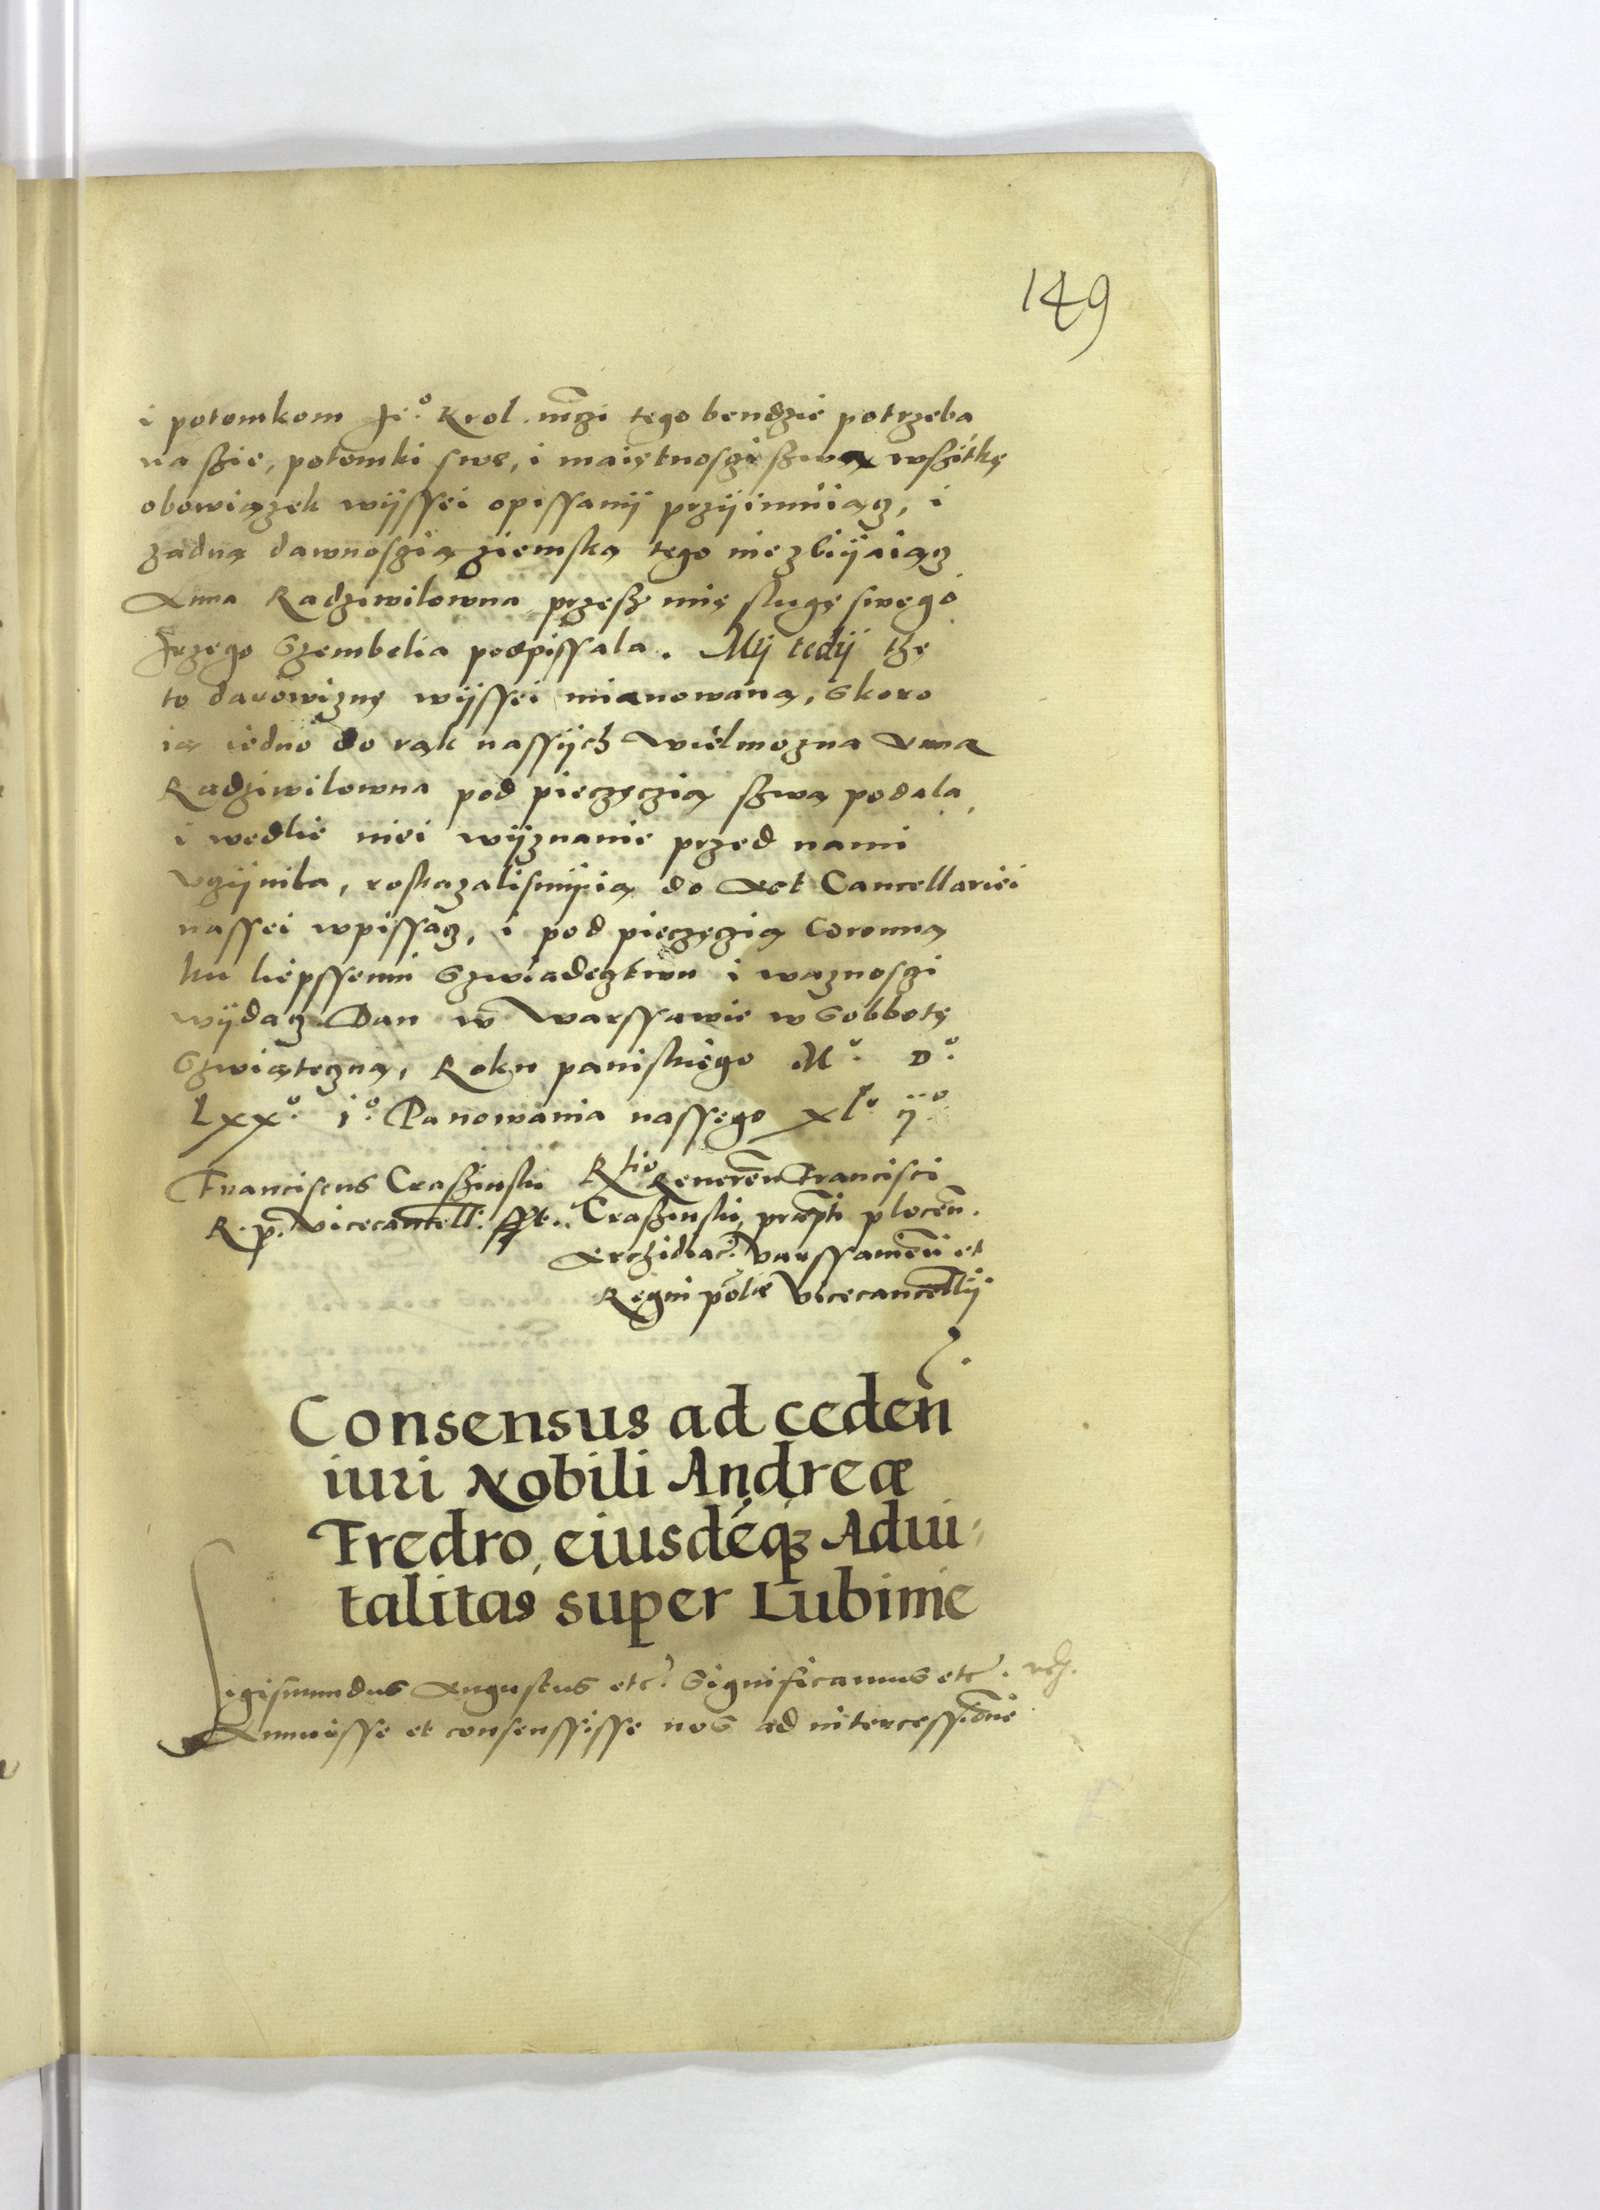 149
i potomkom Je.º Krol. mczi tego bendzie potrzeba
na szie, potomki swe, i maiętnosczi szwą wszitkę
obowiązek wÿssei opissanÿ przÿimuiącz, i
zadną dawnosczią ziemską tego nie zbiÿaiącz
Anna Radziwilowna przesz mię slugę swego
Jrzego Szembelia podpissala. Mÿ tedÿ thę
to darowiznę wÿssei mianowaną, skoro
ią iedno do rąk nassÿch wielmozna Anna
Radziwilowna pod pieczęczią szwą podala,
i wedlie niei wÿznanie przed nami
vczÿnila, roskazalismÿ ią do Act Cancellariei
nassei wpissacz, i pod pieczęczią Coronną
ku liepssemu szwiadecztwu i waznosczi
wÿdacz. Dan w Warssawie w Sobbotę
Szwiąteczną, Roku panskiego M.º D.º
Lxx.º i.º Panowania nassego xl.º ij.º
Franciscus Crasinski R.tio Reueren Francisci
R. p. Vicecancell. sspt. Crasinski, præpti plocen.
Archidiac. Varssauien et
Regni polæ Vicecancellÿ
Consensus ad ceden
iuri Nobili Andreæ
Fredro, eiusdéq3 Adui=
talitas super Lubinie
Sigismundus Augustus etc. Significamus etc.
Annuisse et consenssisse nos ad intercessionē